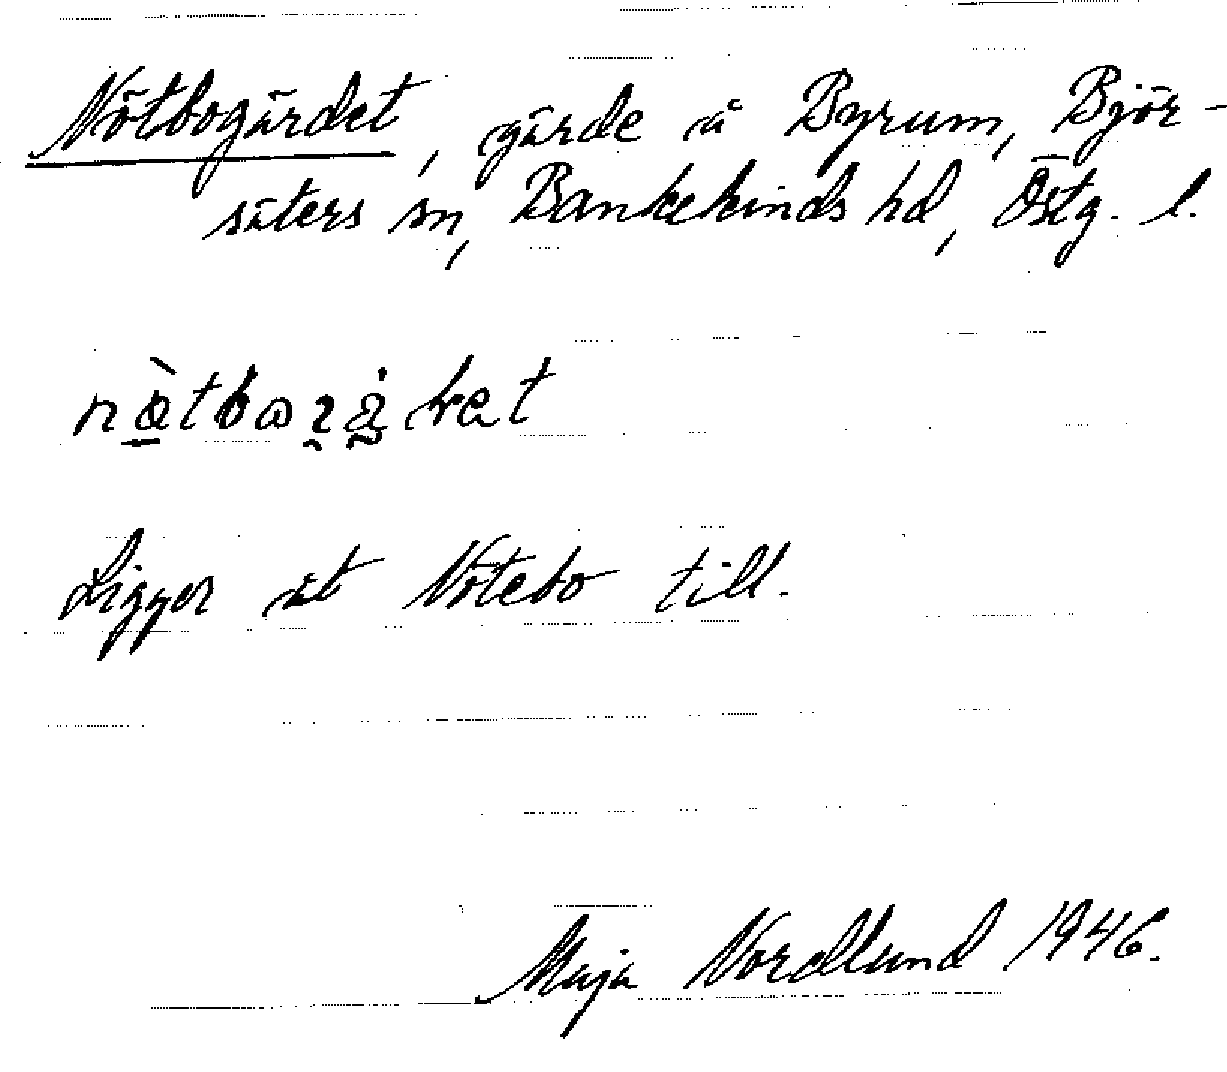 Nötbogärdet, gärde å Byrum, Björ-
säters sn, Bankekinds hd, Östg. l.
Ligger åt Nötebo till.
Maja Nordlund 1946.